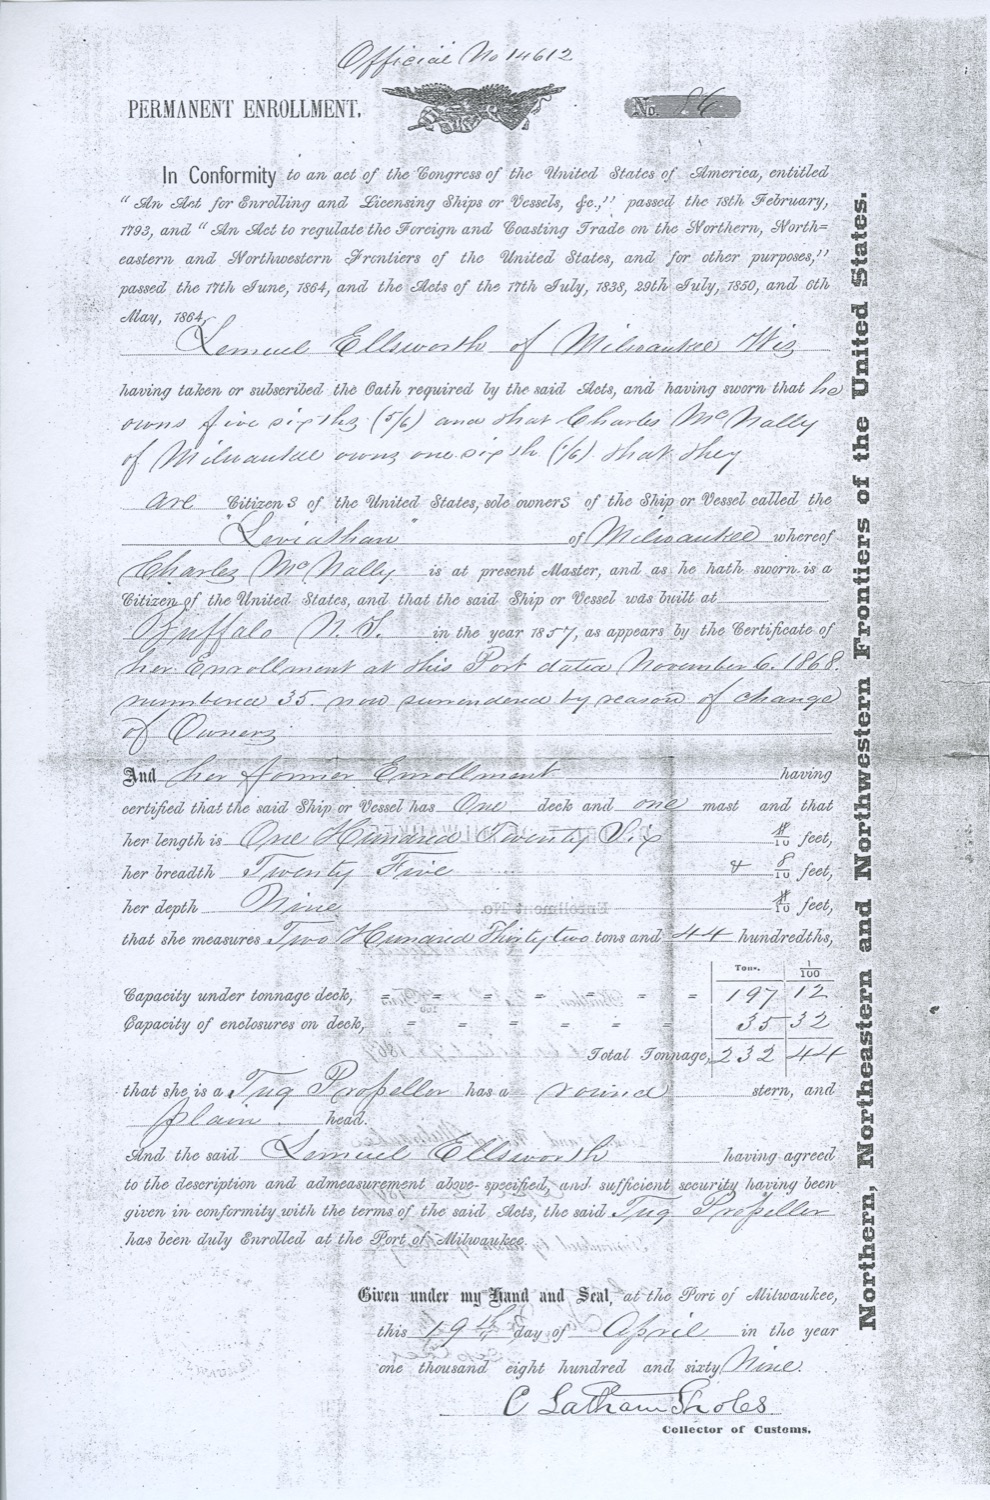 Official No 14612
PERMANENT ENROLLMENT.
No. 86
In Conformity to an act of the Congress of the United States of America, entitled
"An Act for Enrolling and Licensing Ships or Vessels, &c.," passed the 18th February,
1793, and "An Act to regulate the Foreign and Coasting Trade on the Northern, North=
eastern and Northwestern Frontiers of the United States, and for other purposes,"
passed the 17th June, 1864, and the Acts of the 17th July, 1838, 29th July, 1850, and 6th
May, 1864,
Lemuel Ellsworth of Milwaukee Wis
having taken or subscribed the Oath required by the said Acts, and having sworn that he
owns five sixths (5/6) and that Charles McNally
of Milwaukee owns one sixth (1/6) that they
are Citizens of the United States, sole owners of the Ship or Vessel called the
"Leviathan" of Milwaukee whereof
Charles McNally is at present Master, and as he hath sworn is a
Citizen of the United States, and that the said Ship or Vessel was built at
Buffalo N.Y. in the year 1857, as appears by the Certificate of
her Enrollment at this Port dated November 6. 1868.
numbered 35. now surrendered by reason of change
of Owners
And her former Enrollment having
certified that the said Ship or Vessel has One deck and one mast and that
her length is One Hundred Twenty Six /10 feet,
her breadth Twenty Five & 8/10 feet,
her depth Nine /10 feet,
that she measures Two Hundred Thirty two tons and 44 hundredths,
Tons. 1/100
Capacity under tonnage deck, = = = = = = = 197 12
Capacity of enclosures on deck, = = = = = = 35 32
Total Tonnage, 232 44
that she is a Tug Propeller has a round stern, and
plain head.
And the said Lemuel Ellsworth having agreed
to the description and admeasurement above specified, and sufficient security having been
given in conformity with the terms of the said Acts, the said Tug Propeller
has been duly Enrolled at the Port of Milwaukee.
Given under my Hand and Seal, at the Port of Milwaukee,
this 19th day of April in the year
one thousand eight hundred and sixty Nine.
C Latham Sholes
Collector of Customs.
Northern, Northeastern and Northwestern Frontiers of the United States.